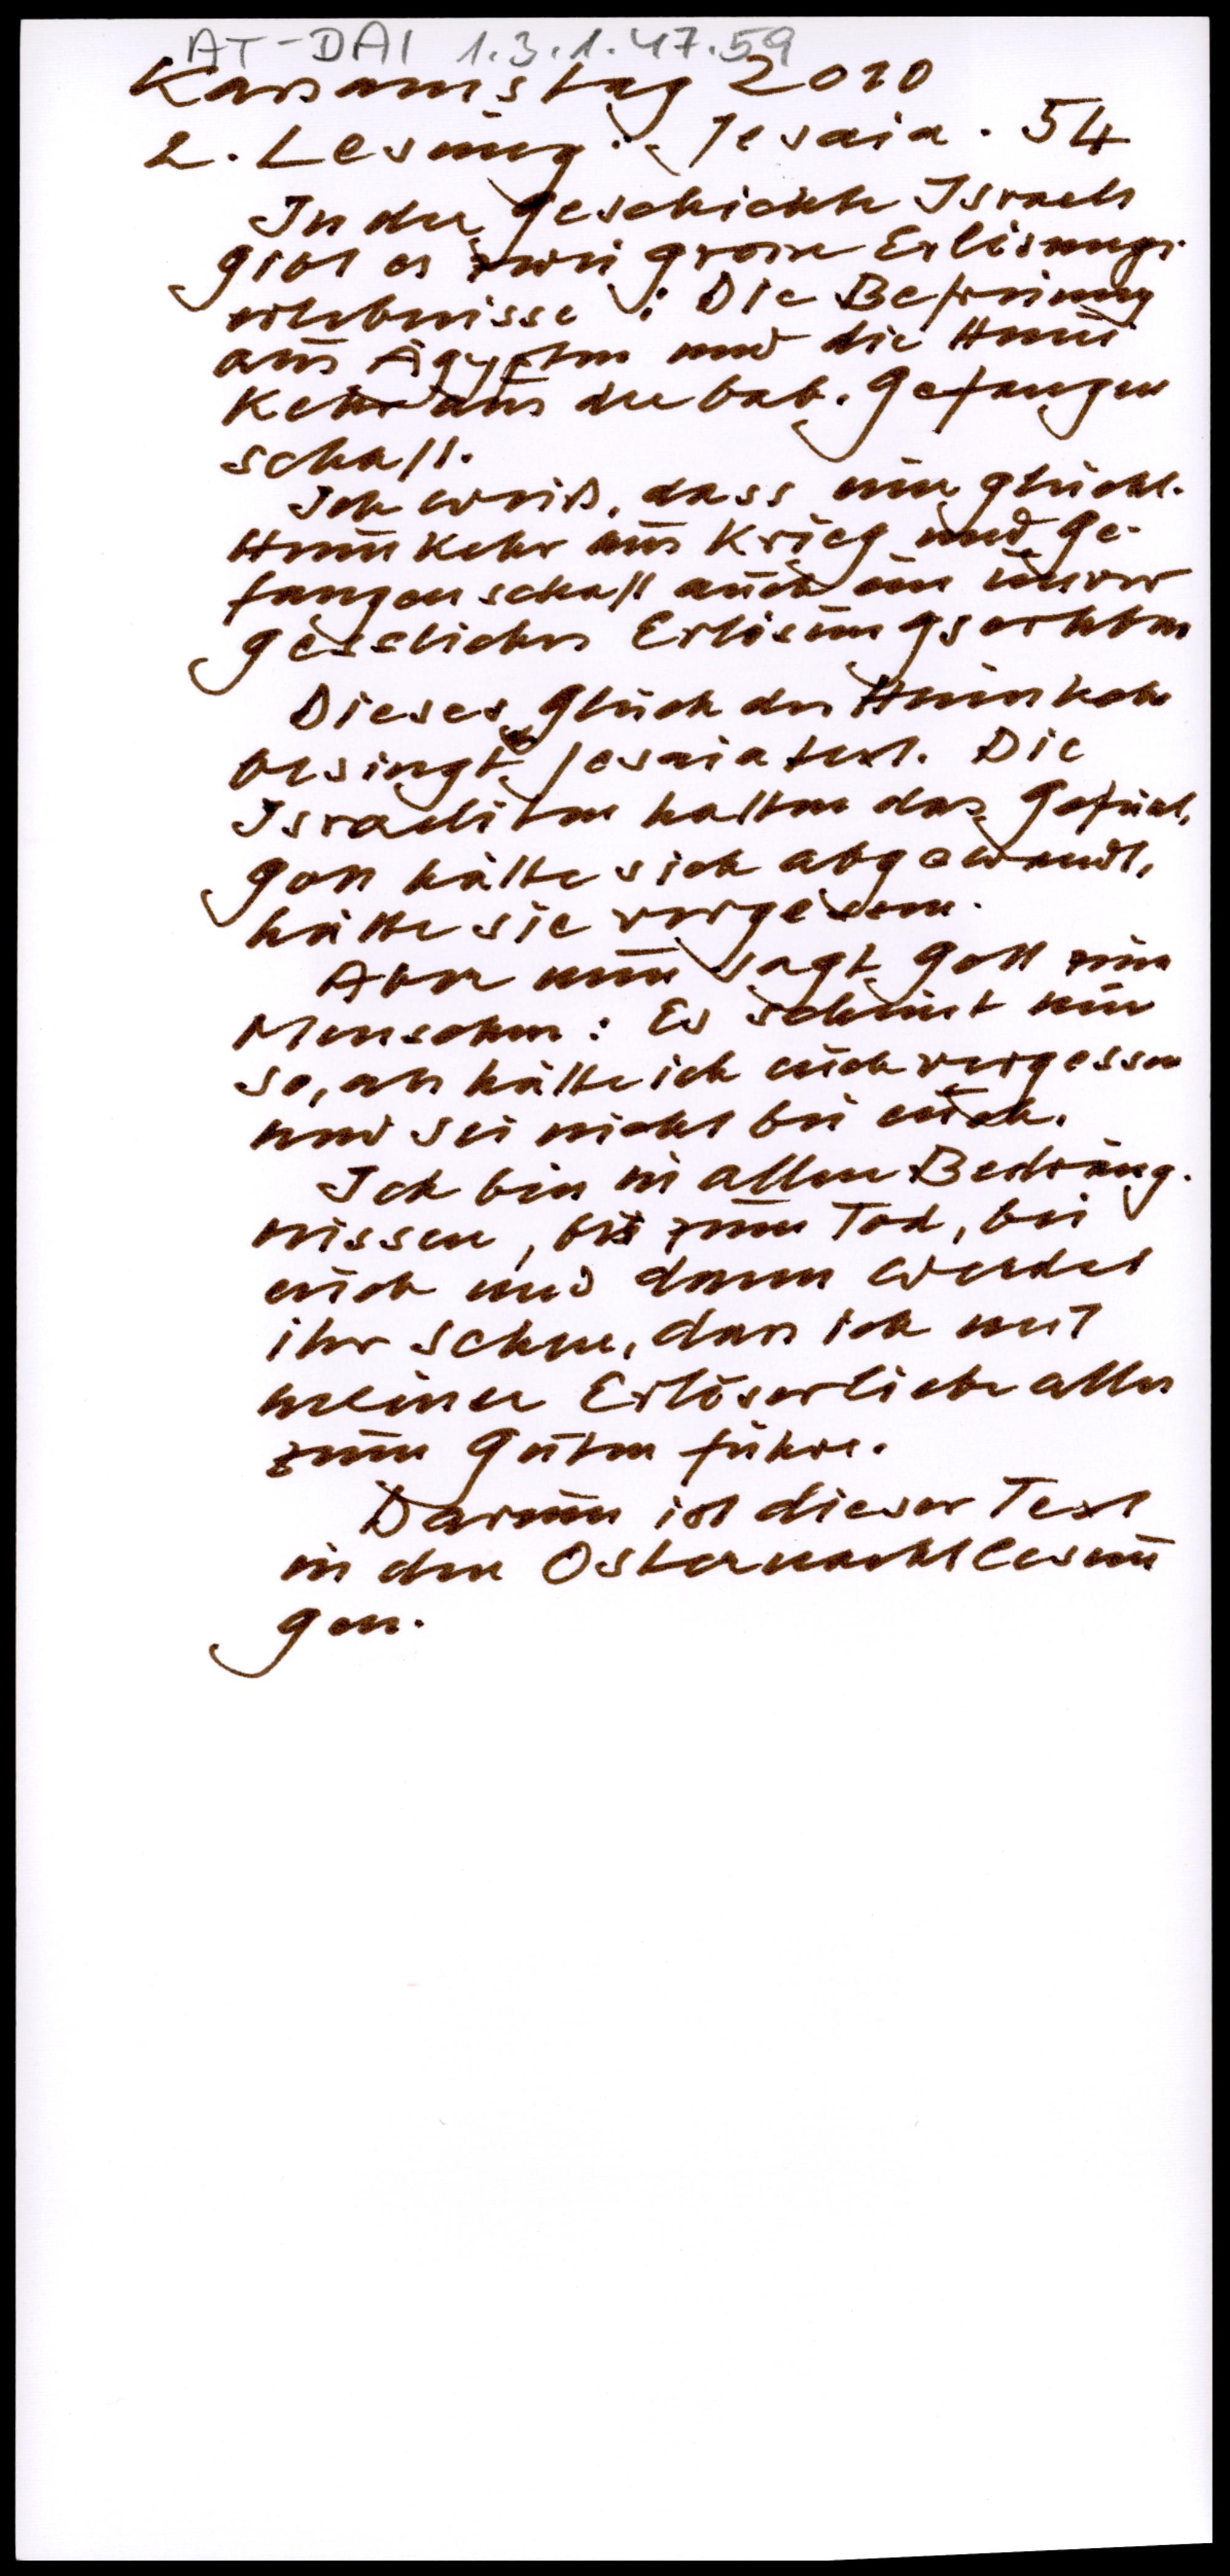 AT-DAI 1.3.1.47.59
Karsamstag 2010
2. Lesung: Jesaia. 54
In der Geschichte Israels
gibt es zwei grosse Erlösungs-
erlebnisse: Die Befreiung
aus Ägypten und die Heim
kehr aus der bab. Gefangen
schaft.
Ich weiß, dass eine glückl.
Heimkehr aus Krieg und Ge-
fangenschaft auch ein unver
gessliches Erlösungserleben
Dieses Glück der Heimkehr
besingt Jesaiatext. Die
Israeliten hatten das Gefühl,
Gott hätte sich abgewandt,
hätte sie vergessen.
Aber nun sagt Gott zum
Menschen: Es scheint nur
so, als hätte ich euch vergessen
und sei nicht bei euch.
Ich bin in allen Bedräng-
nissen, bis zum Tod, bei
euch und dann werdet
ihr sehen, dass ich mit
meiner Erlöserliebe alles
zum Guten führe.
Darum ist dieser Text
in den Osternachtlesun
gen.